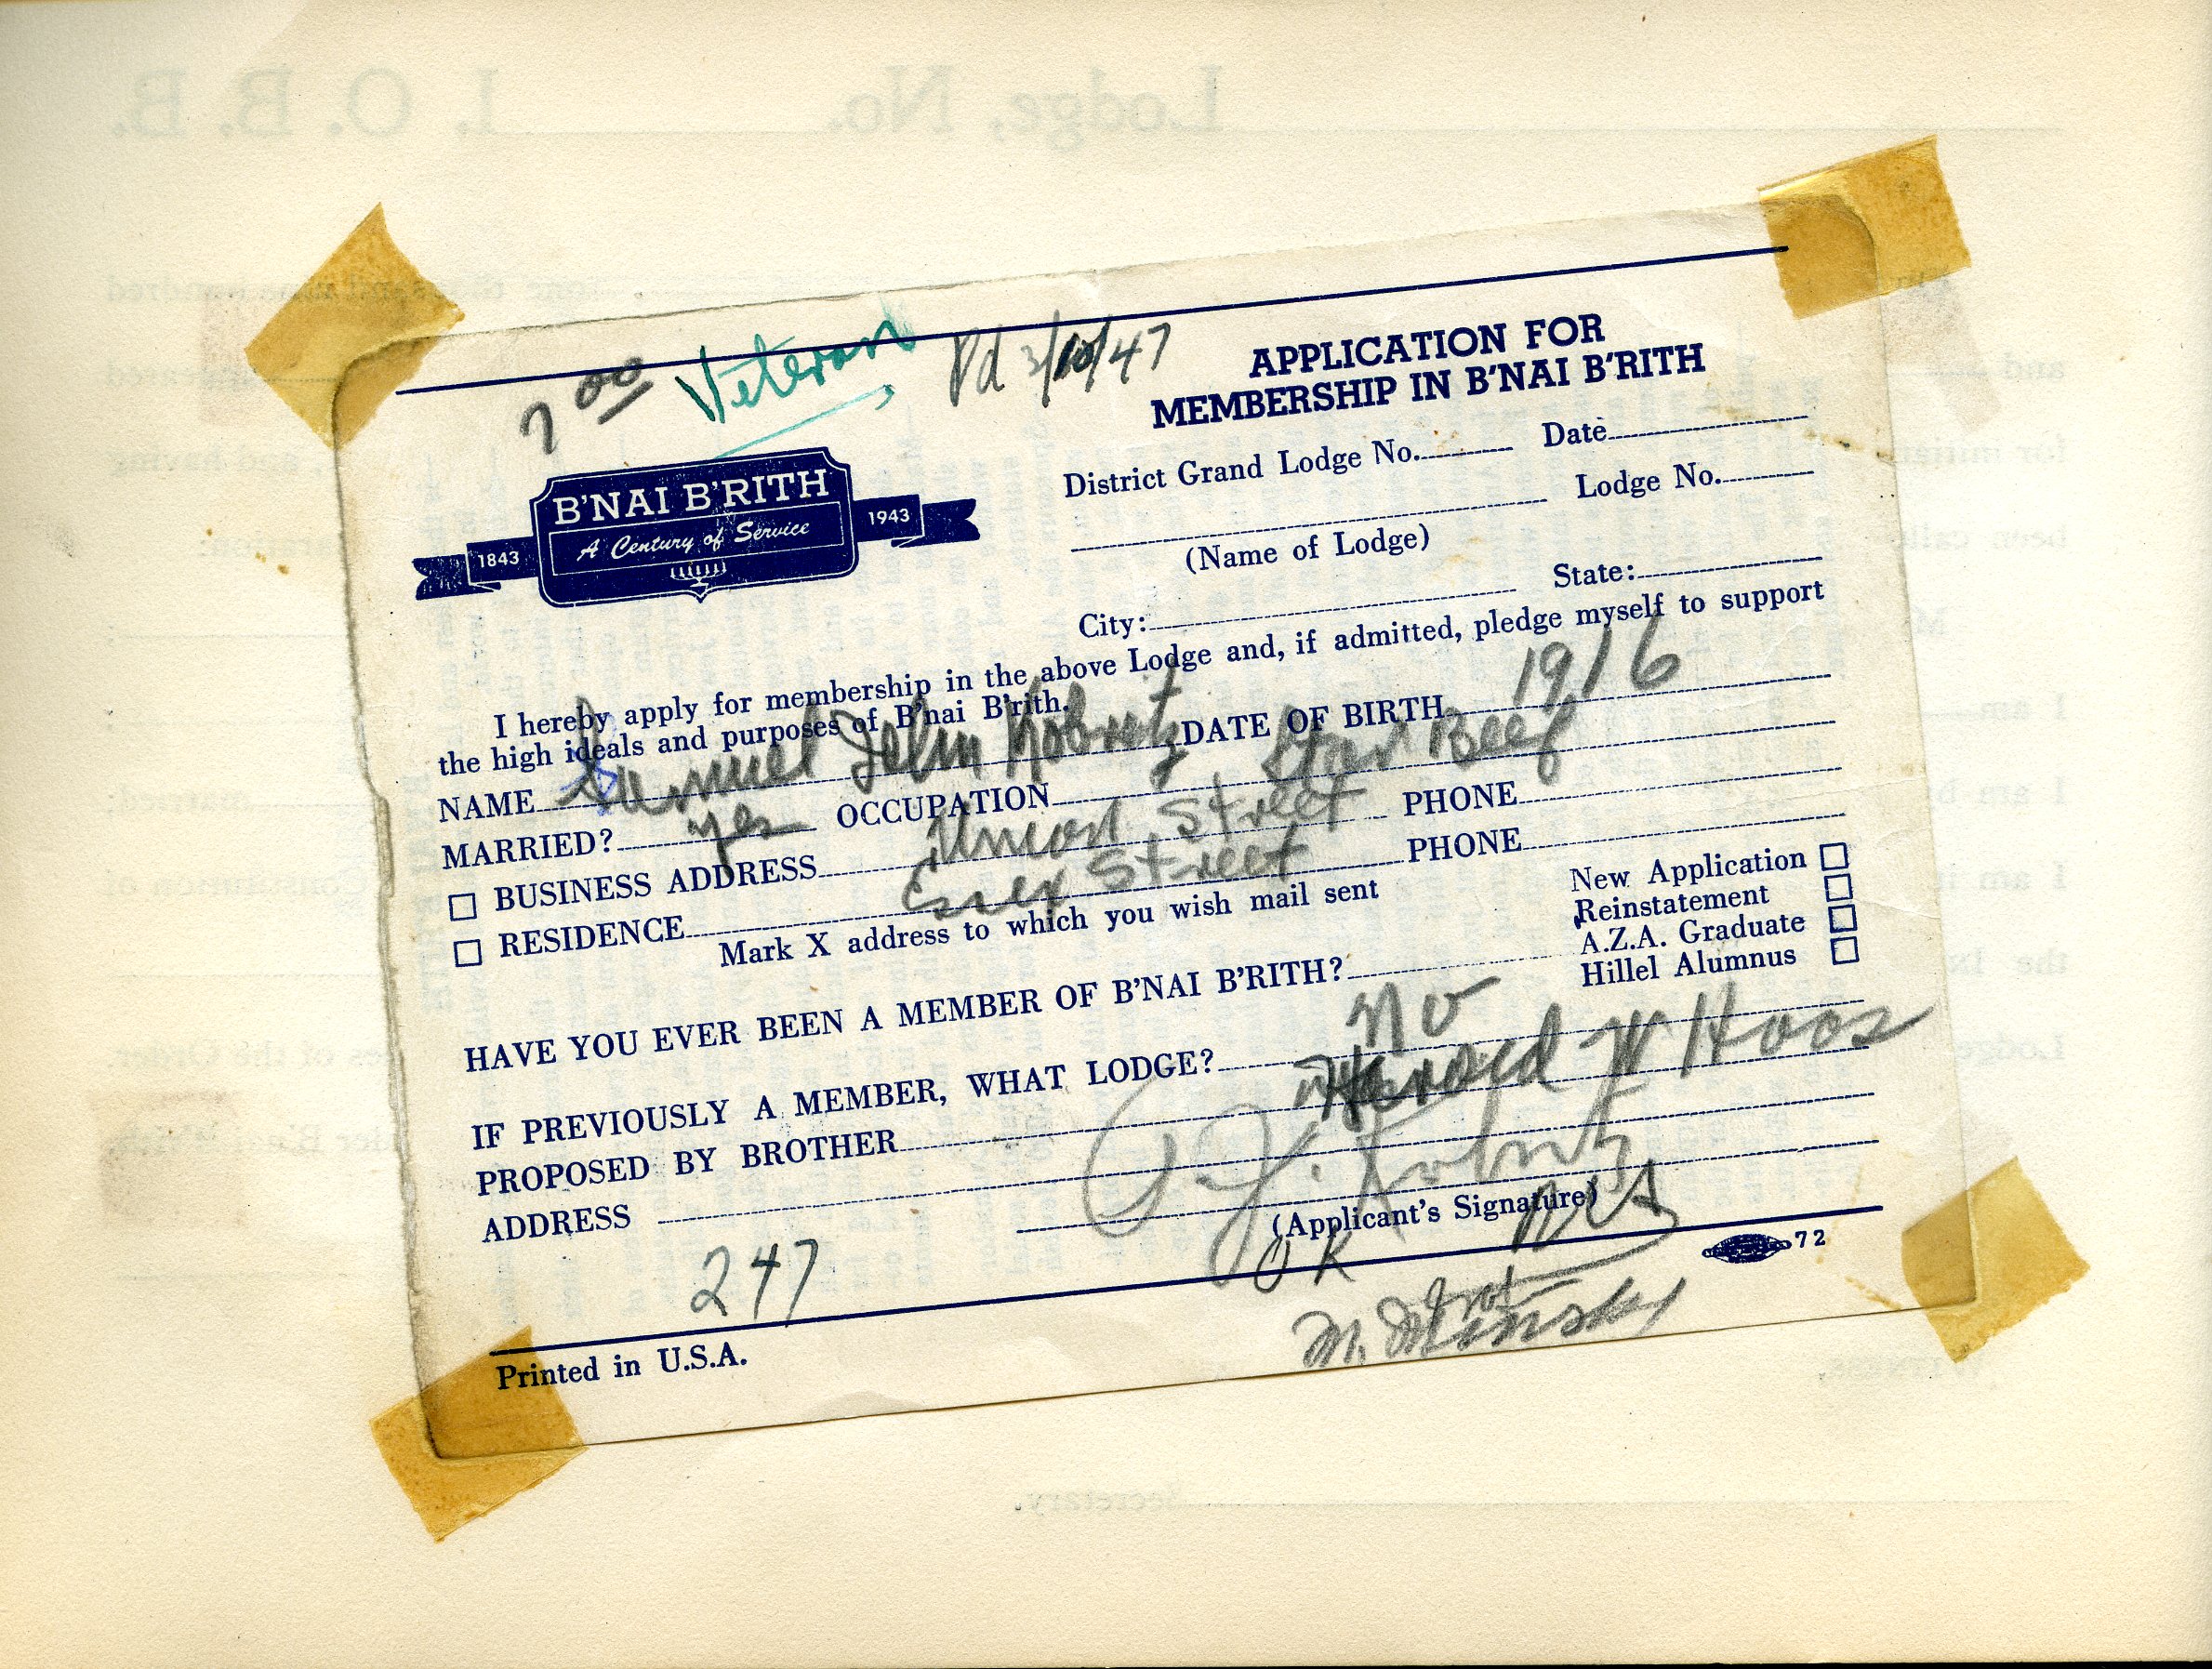 Lodge, No. I. O. B. B.
7 00 Veteran Pd 3/10/47
APPLICATION FOR
MEMBERSHIP IN B'NAI B'RITH
B'NAI B'RITH
1843 A Century of Service 1943
District Grand Lodge No. Date
Lodge No.
(Name of Lodge)
City: State:
I hereby apply for membership in the above Lodge and, if admitted, pledge myself to support
the high ideals and purposes of B'nai B'rith.
NAME Samuel John DATE OF BIRTH 1916
MARRIED? yes OCCUPATION Star Beef
BUSINESS ADDRESS Union Street PHONE
RESIDENCE Essex Street PHONE
Mark X address to which you wish mail sent
New Application
Reinstatement
A.Z.A. Graduate
Hillel Alumnus
HAVE YOU EVER BEEN A MEMBER OF B'NAI B'RITH? no
IF PREVIOUSLY A MEMBER, WHAT LODGE?
PROPOSED BY BROTHER Harold W Hoos
ADDRESS
(Applicant's Signature)
OK
M. Minsky
247
72
Printed in U.S.A.
Secretary.